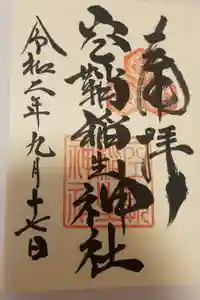 奉拝
穴鞴稲生神社
令和二年九月十七日